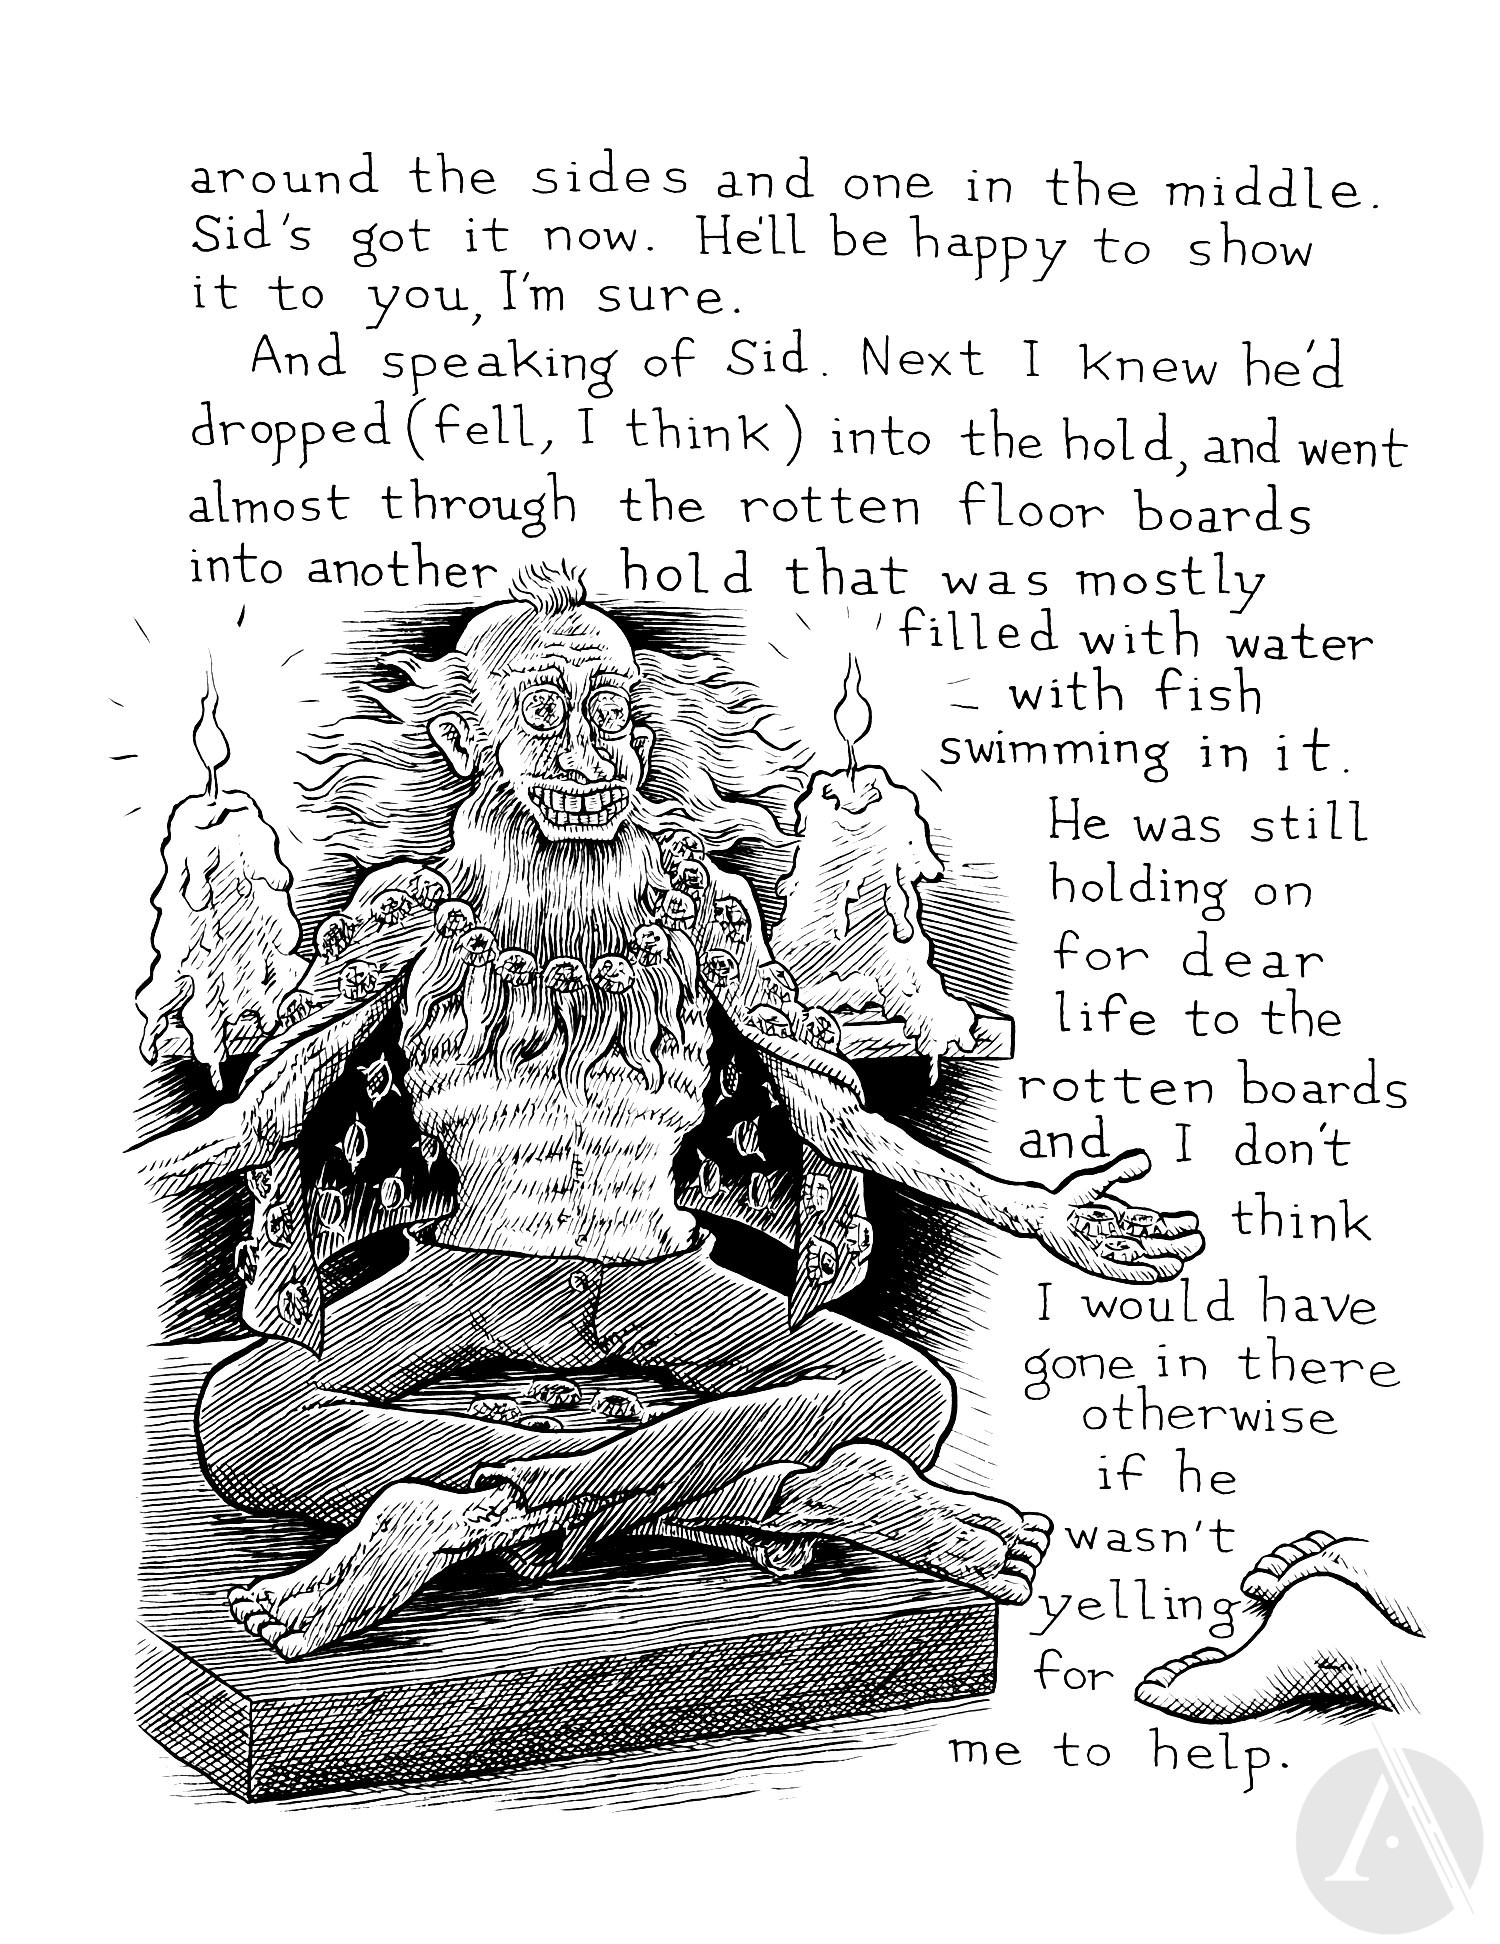 around the sides and one in the middle.
Sid's got it now. He'll be happy to show
it to you, I'm sure.
And speaking of Sid. Next I knew he'd
dropped (fell, I think) into the hold, and went
almost through the rotten floor boards
into another hold that was mostly
filled with water
with fish
swimming in it.
He was still
holding on
for dear
life to the
rotten boards
and I don't
think
I would have
gone in there
otherwise
if he
wasn't
yelling
for
me to help.